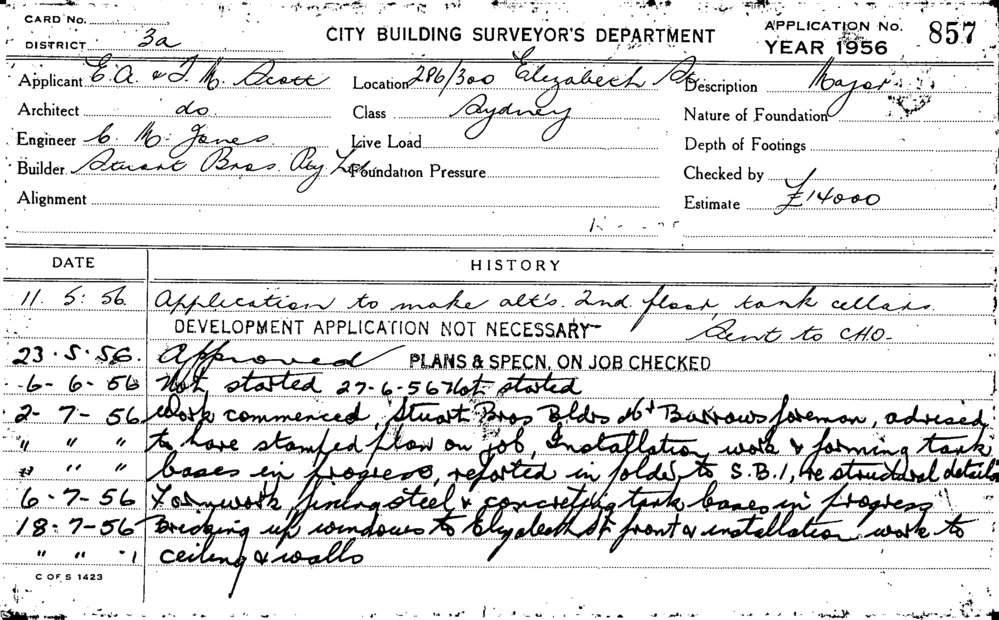 CARD No.
DISTRICT 3a
CITY BUILDING SURVEYOR'S DEPARTMENT
APPLICATION No. 857
YEAR 1956
Applicant E. A. & T. M. Scott
Location 286/300 Elizabeth St
Description Major
Architect do.
Class Sydney
Nature of Foundation
Engineer C. M. Jones
Live Load
Depth of Footings
Builder Stuart Bros. Pty Ltd
Foundation Pressure
Checked by
Alignment
Estimate £14000
DATE HISTORY
11. 5. 56. Application to make alt's. 2nd floor, tank cellars.
DEVELOPMENT APPLICATION NOT NECESSARY Sent to CHO.
23.5.56. Approved PLANS & SPECN, ON JOB CHECKED
6-6-56 Not started 27-6-56 Not started
2-7-56 Work commenced, Stuart Bros Bldrs Mr Burrows foreman, advised
" " " to have stamped plan on job, Installation work & forming tank
" " " bases in progress, reported in folder to S.B.I, re structural details
6-7-56 Formwork fixing steel & concreting tank bases in progress
18-7-56 Bricking up windows to Elizabeth St front & installation work to
" " " ceiling & walls
C OF S 1423